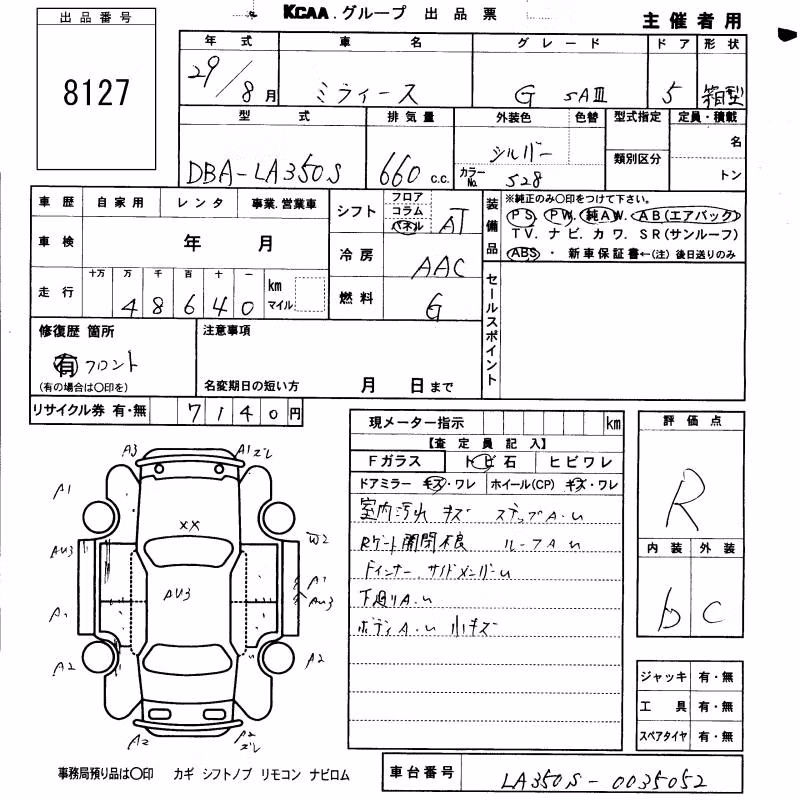 KCAA.グループ 出品票
主催者用
出品番号
8127
年式 車名 グレード ドア 形状
29/8月 ミライース G SAⅢ 5 箱型
型式 排気量 外装色 色替 型式指定 定員・積載
DBA-LA350S 660 c.c. シルバー 名
カラーNo. 528 類別区分 トン
車歴 自家用 レンタ 事業.営業車
シフト フロア コラム パネル AT
装備品 ※純正のみ〇印をつけて下さい。
PS. PW. 純AW. AB(エアバック)
TV. ナビ. カワ. SR(サンルーフ)
ABS ・ 新車保証書←(注)後日送りのみ
車検 年 月
冷房 AAC
走行 十万 万 千 百 十 一
48640 km マイル
燃料 G
セールスポイント
修復歴 箇所
有 フロント
(有の場合は〇印を)
注意事項
名変期日の短い方 月 日まで
リサイクル券 有・無 7140円
現メーター指示 km
【査定員記入】
Fガラス トビ石 ヒビワレ
ドアミラー キズ・ワレ ホイール(CP) キズ・ワレ
室内汚れ キズ ステップA.U
Rゲート開閉不良 ルーフAU
Fインナー サイドメンバーU
下廻りA.U
ボディA.U 小キズ
評価点
R
内装 外装
b C
ジャッキ 有・無
工具 有・無
スペアタイヤ 有・無
A3 A1 ズレ
A1
XX
AU3 W2
AU3 A1
AU3
A1
A2 A2
A2 A2
ズレ
事務局預り品は〇印 カギ シフトノブ リモコン ナビロム
車台番号 LA350S-0035052